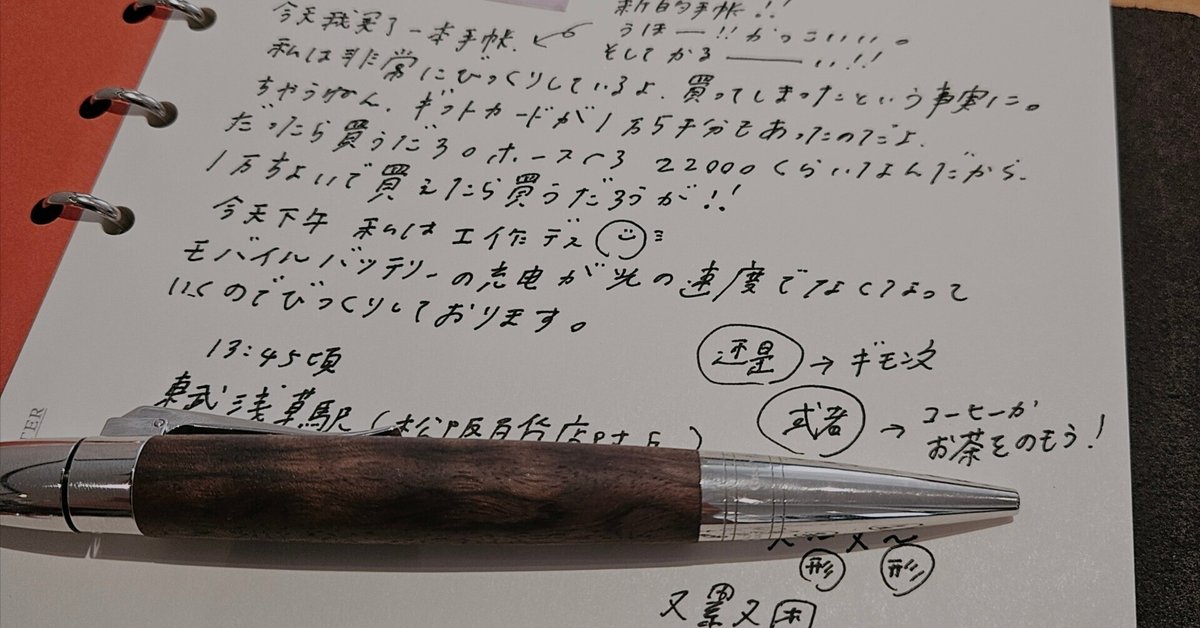 今天我买了一本手帐.
新的手帐!!
うほー!!かっこいいい。
そしてかるーーーい!!
私は非常にびっくりしているよ.買ってしまったという事実に。
ちゃうねん.ギフトカードが1万5千分もあったのでよ.
だったら買うだろ。 22000くらいなんだから.
1万ちょいで買えたら買うだろうが!!
今天下午 私は
モバイルバッテリーの充电が光の速度でなくなって
いくのでびっくりしております。
13:45頃
还是 → ギモン文
或者 → コーヒーか
お茶をのもう!
東武浅草駅(松阪百货店
又〜又〜
形 形
又累又困
TER